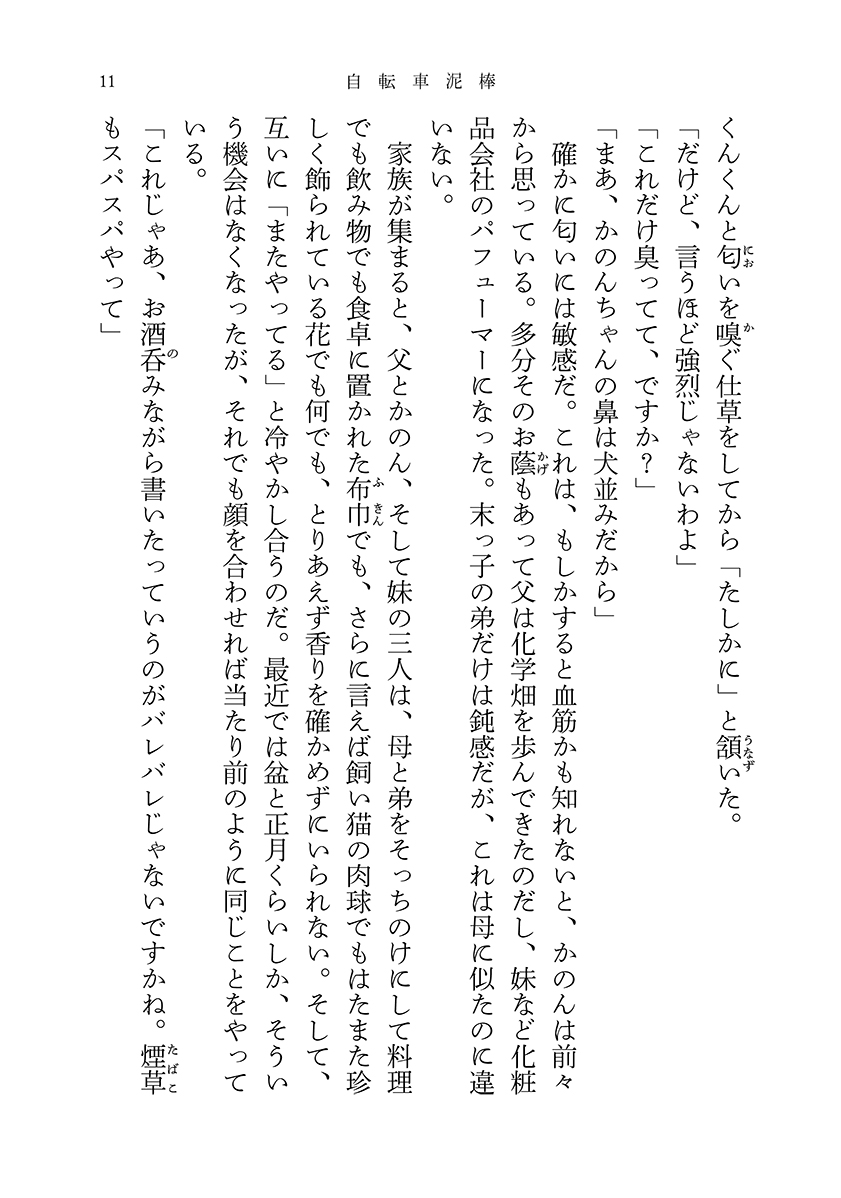 11
自転車泥棒
くんくんと匂いを嗅ぐ仕草をしてから「たしかに」と頷いた。
「だけど、言うほど強烈じゃないわよ」
「これだけ臭ってて、ですか？」
「まあ、かのんちゃんの鼻は犬並みだから」
確かに匂いには敏感だ。これは、もしかすると血筋かも知れないと、かのんは前々
から思っている。多分そのお蔭もあって父は化学畑を歩んできたのだし、妹など化粧
品会社のパフューマーになった。末っ子の弟だけは鈍感だが、これは母に似たのに違
いない。
家族が集まると、父とかのん、そして妹の三人は、母と弟をそっちのけにして料理
でも飲み物でも食卓に置かれた布巾でも、さらに言えば飼い猫の肉球でもはたまた珍
しく飾られている花でも何でも、とりあえず香りを確かめずにいられない。そして、
互いに「またやってる」と冷やかし合うのだ。最近では盆と正月くらいしか、そうい
う機会はなくなったが、それでも顔を合わせれば当たり前のように同じことをやって
いる。
「これじゃあ、お酒呑みながら書いたっていうのがバレバレじゃないですかね。煙草
もスパスパやって」